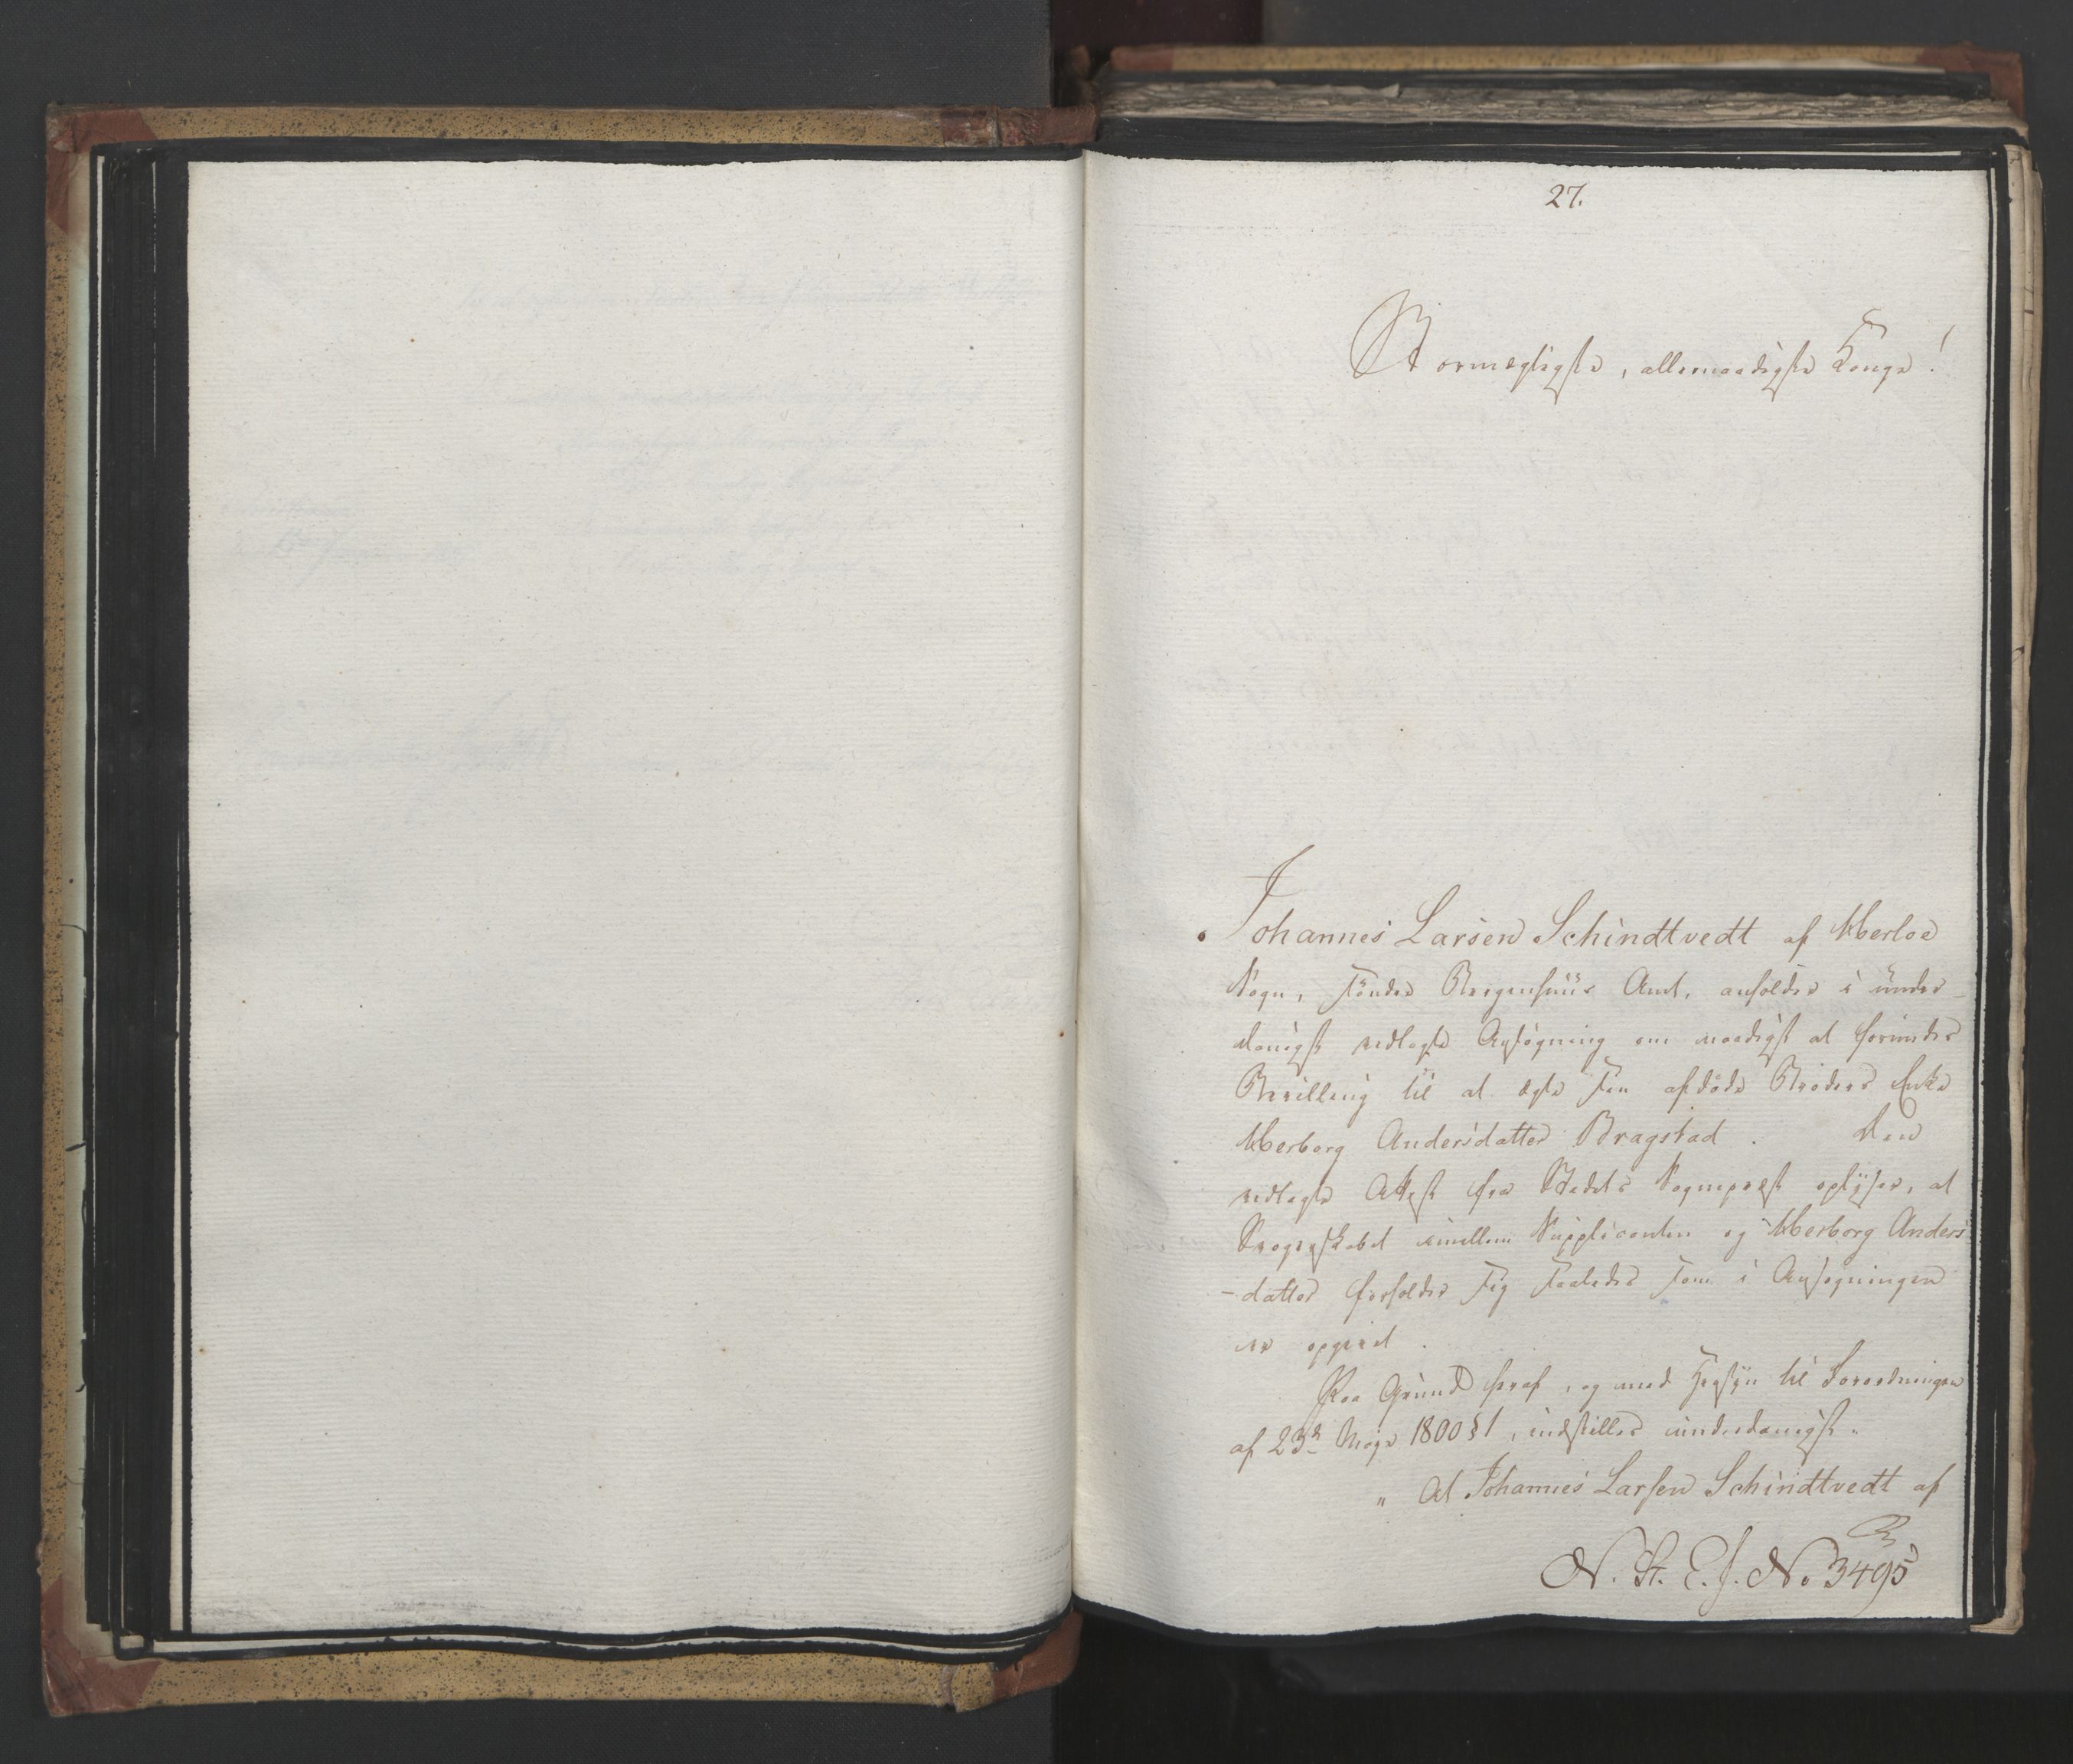 27.
Stormægtigste, allernaadigste Konge!
Johannes Larsen Schindtvedt af
Sogn, søndre Bergenhuus Amt, anholder i under-
danigst vedlagte Ansøgning om naadigst at forundes
Bevilling til at ægte sin afdøde Broders Enke
Herborg Andersdatter Bragstad. Den
vedlagte Attest fra Stedets Sognepræst oplyser, at
Svogerskabet imellem Supplicanten og Herborg Anders
-datter forholder sig saaledes som i Ansøgningen
er opgivet.
Paa Grund heraf, og med Hensyn til Forordningen
af 23de Maj 1800 § 1, indstilles underdanigst:
" At Johannes Larsen Schindtvedt af
N. St. E. J. No 3495